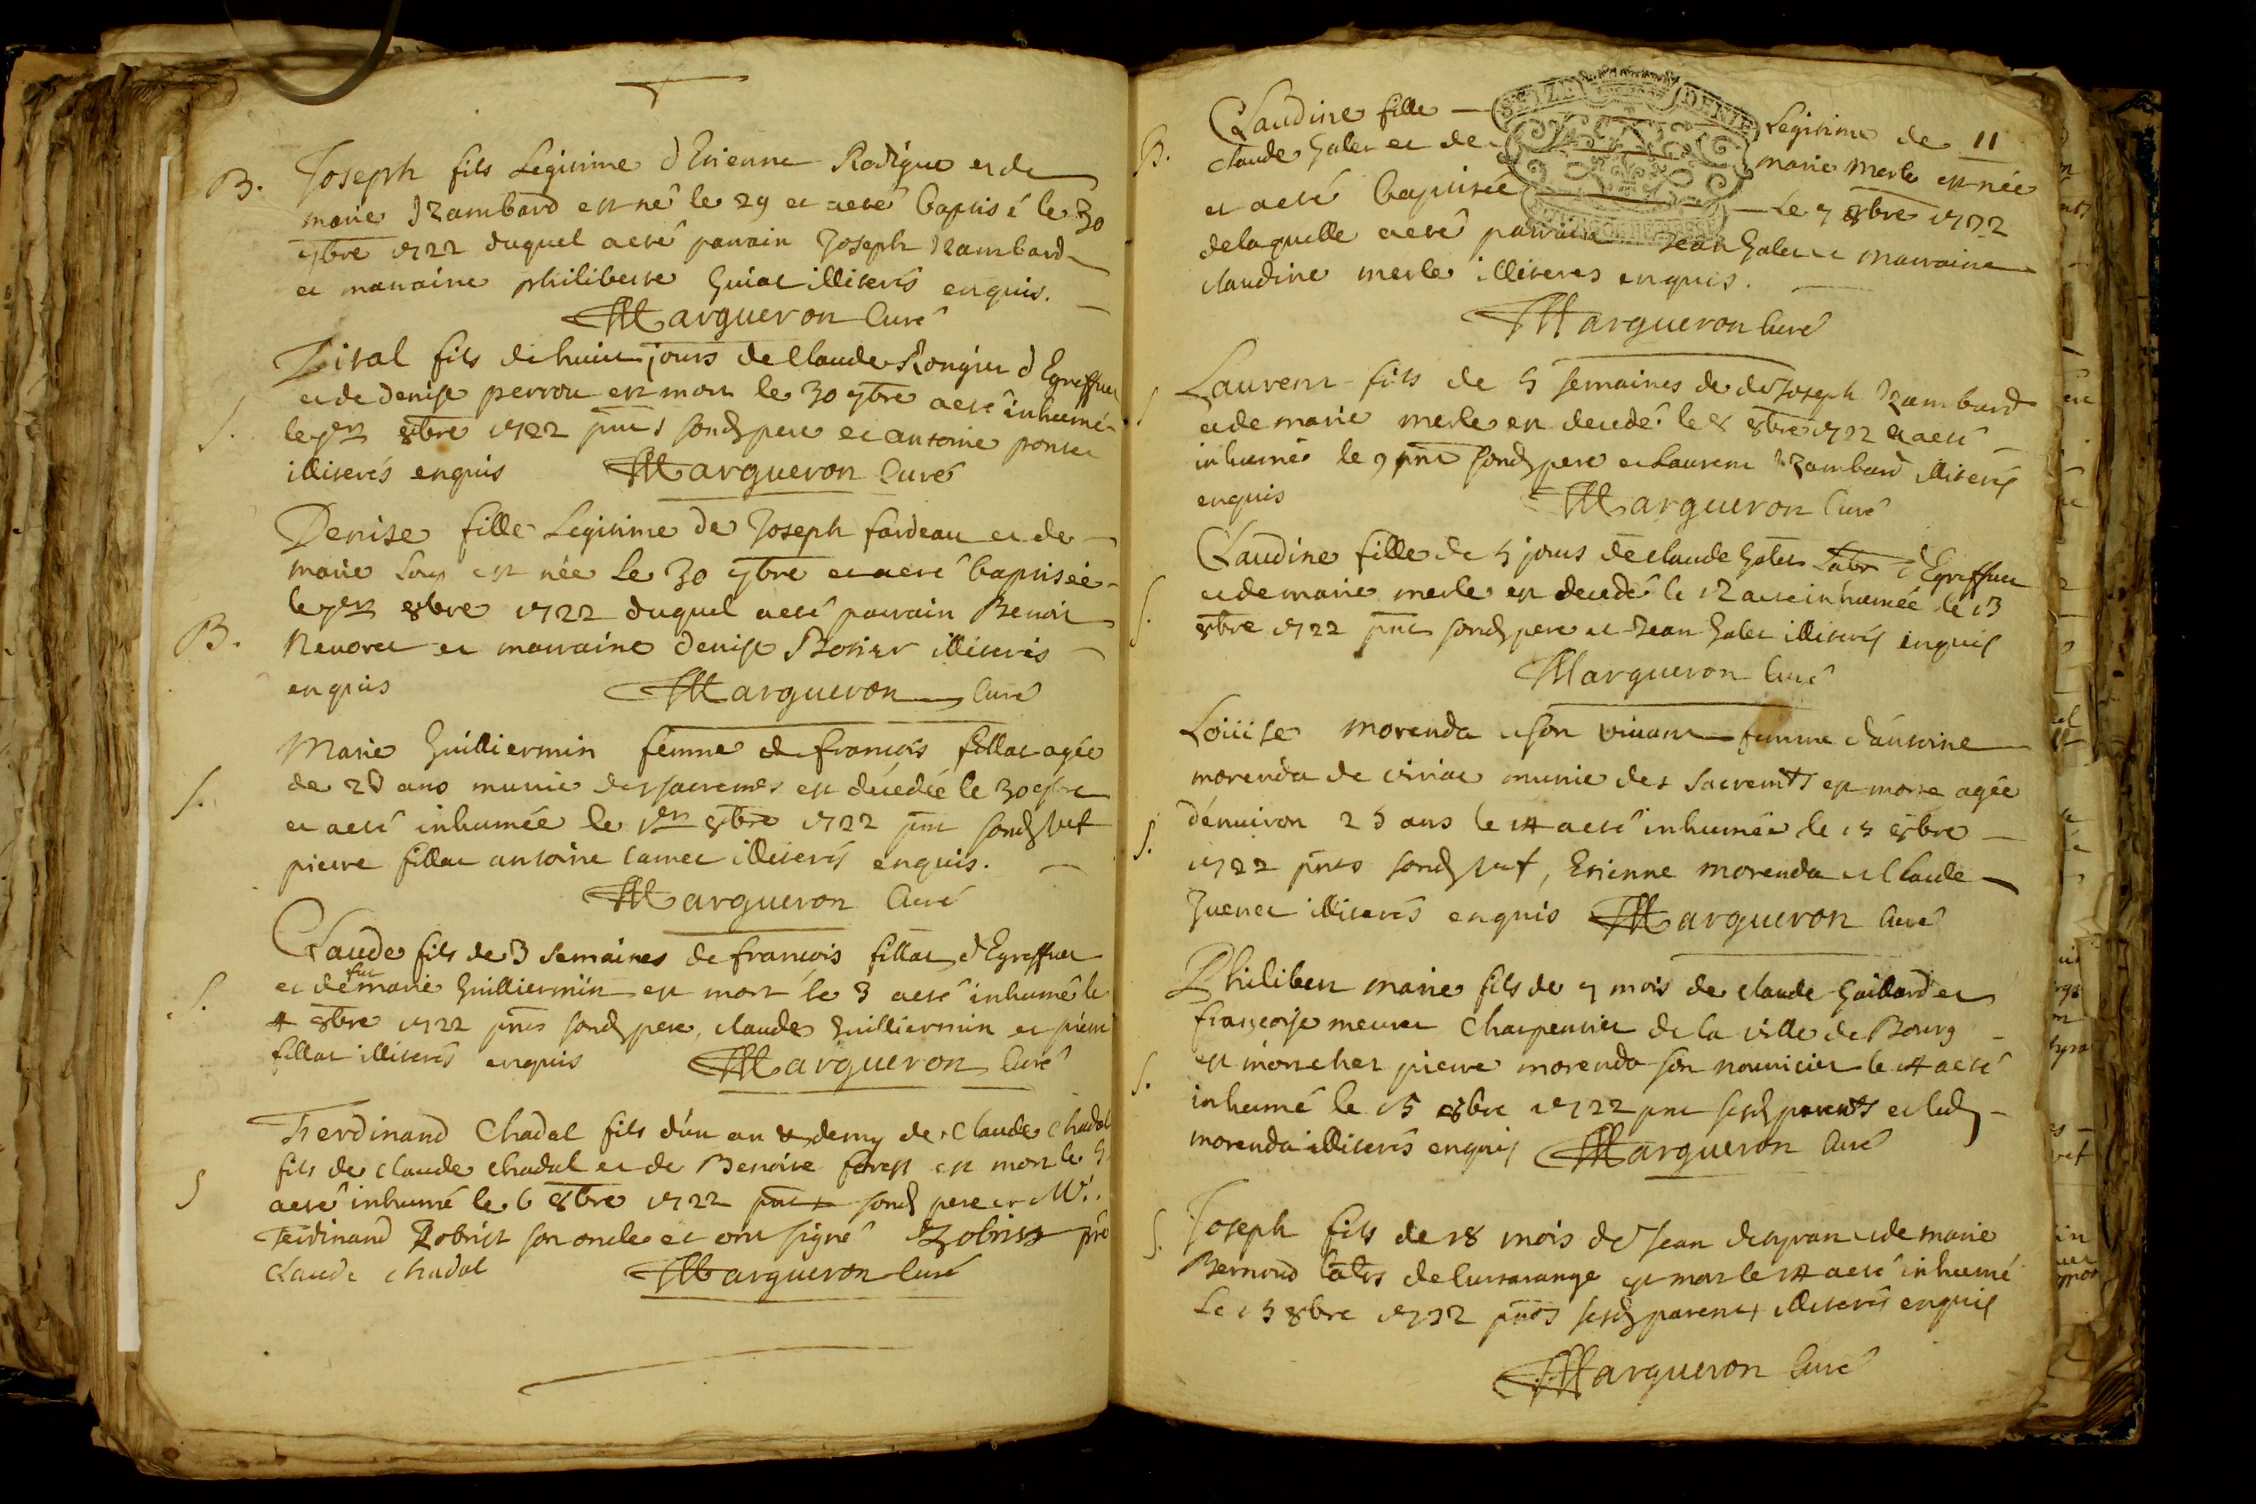 B. Joseph fils Legitime d'Etienne Rodigue et de
marie Izambard est né le 29 et a eté baptisé le 30
7bre 1722 duquel a eté parrain Joseph Izambard
et marraine philiberte Guiat illiterés enquis.
Margueron Curé
Vital fils de huict jours de Claude Rongier d'Egreffier
et de denise perrou est mort le 30 7bre a eté inhumé
S. le 1er 8bre 1722 pnts sond pere et antoine
illiterés enquis Margueron Curé
Denise fille Legitime de Joseph fardeau et de
marie est née Le 30 7bre et a eté baptisée
le 1er 8bre 1722 duquel a eté parrain Benoit
B. Nevoret et marraine denise Borier illiterés
enquis Margueron Curé
Marie Guilliermin femme de francois fillat agée
S. de 28 ans munie des sacremes est décedée le 30 7bre
et a eté inhumée le 1er 8bre 1722 pnt sond
pierre fillat antoine Camet illiterés enquis.
Margueron Curé
Claude fils de 3 semaines de francois fillat d'Egreffier
S. et de fut marie Guilliermin est mort le 3 a eté inhumé le
4 8bre 1722 pnts sond pere, claude Guilliermin et pierre
fillat illiterés enquis Margueron Curé
Ferdinand Chadal fils d'un an & demy de Claude Chadal
fils de claude chadal et de Benoite forest est mort le 5
S a eté inhumé le 6 8bre 1722 pnt sond pere et Mr.
Ferdinand Robrist son oncle et ont signé
Claude chadal Margueron Curé
11
Claudine fille Legitime de
B. claude Galet et de marie Merle est née
et a eté baptisée Le 7 8bre 1722
de laquelle a eté parrain Jean Galet et marraine
claudine merle illiteres enquis.
Margueron Curé
S Laurent fils de 5 semaines de Joseph Izambard
et de marie merle est decedé le 8 8bre 1722 a eté
inhumé le 9 pnt sond pere et Laurent Izambard illiterés
enquis Margueron Curé
Claudine fille de 5 jours de claude Galet Labr d'Egreffier
S. et de marie merle est decedé le 12 a eté inhumée le 13
8bre 1722 pnts sond pere et Jean Galet illiterés enquis
Margueron Curé
Louise morenda a son vivant femme d'antoine
morenda de viriat munie des Sacremts est morte agée
S. d'environ 25 ans le 14 a eté inhumée le 15 8bre
1722 pnts sond, Etienne morenda et Claude
illiterés enquis Margueron Curé
Philibert marie fils de 7 mois de claude Gaillard et
francoise meurier Charpentier de la ville de Bourg
S. est mort chez pierre morenda son nourricier le 14 a eté
inhumé le 15 8bre 1722 pnt sesd parents et led
morenda illiterés enquis Margueron Curé
S. Joseph fils de 18 mois de Jean et de marie
Bernoud labrs de est mort le 14 a eté inhumé
Le 15 8bre 1722 pnts sesd parents illiterés enquis
Margueron Curé